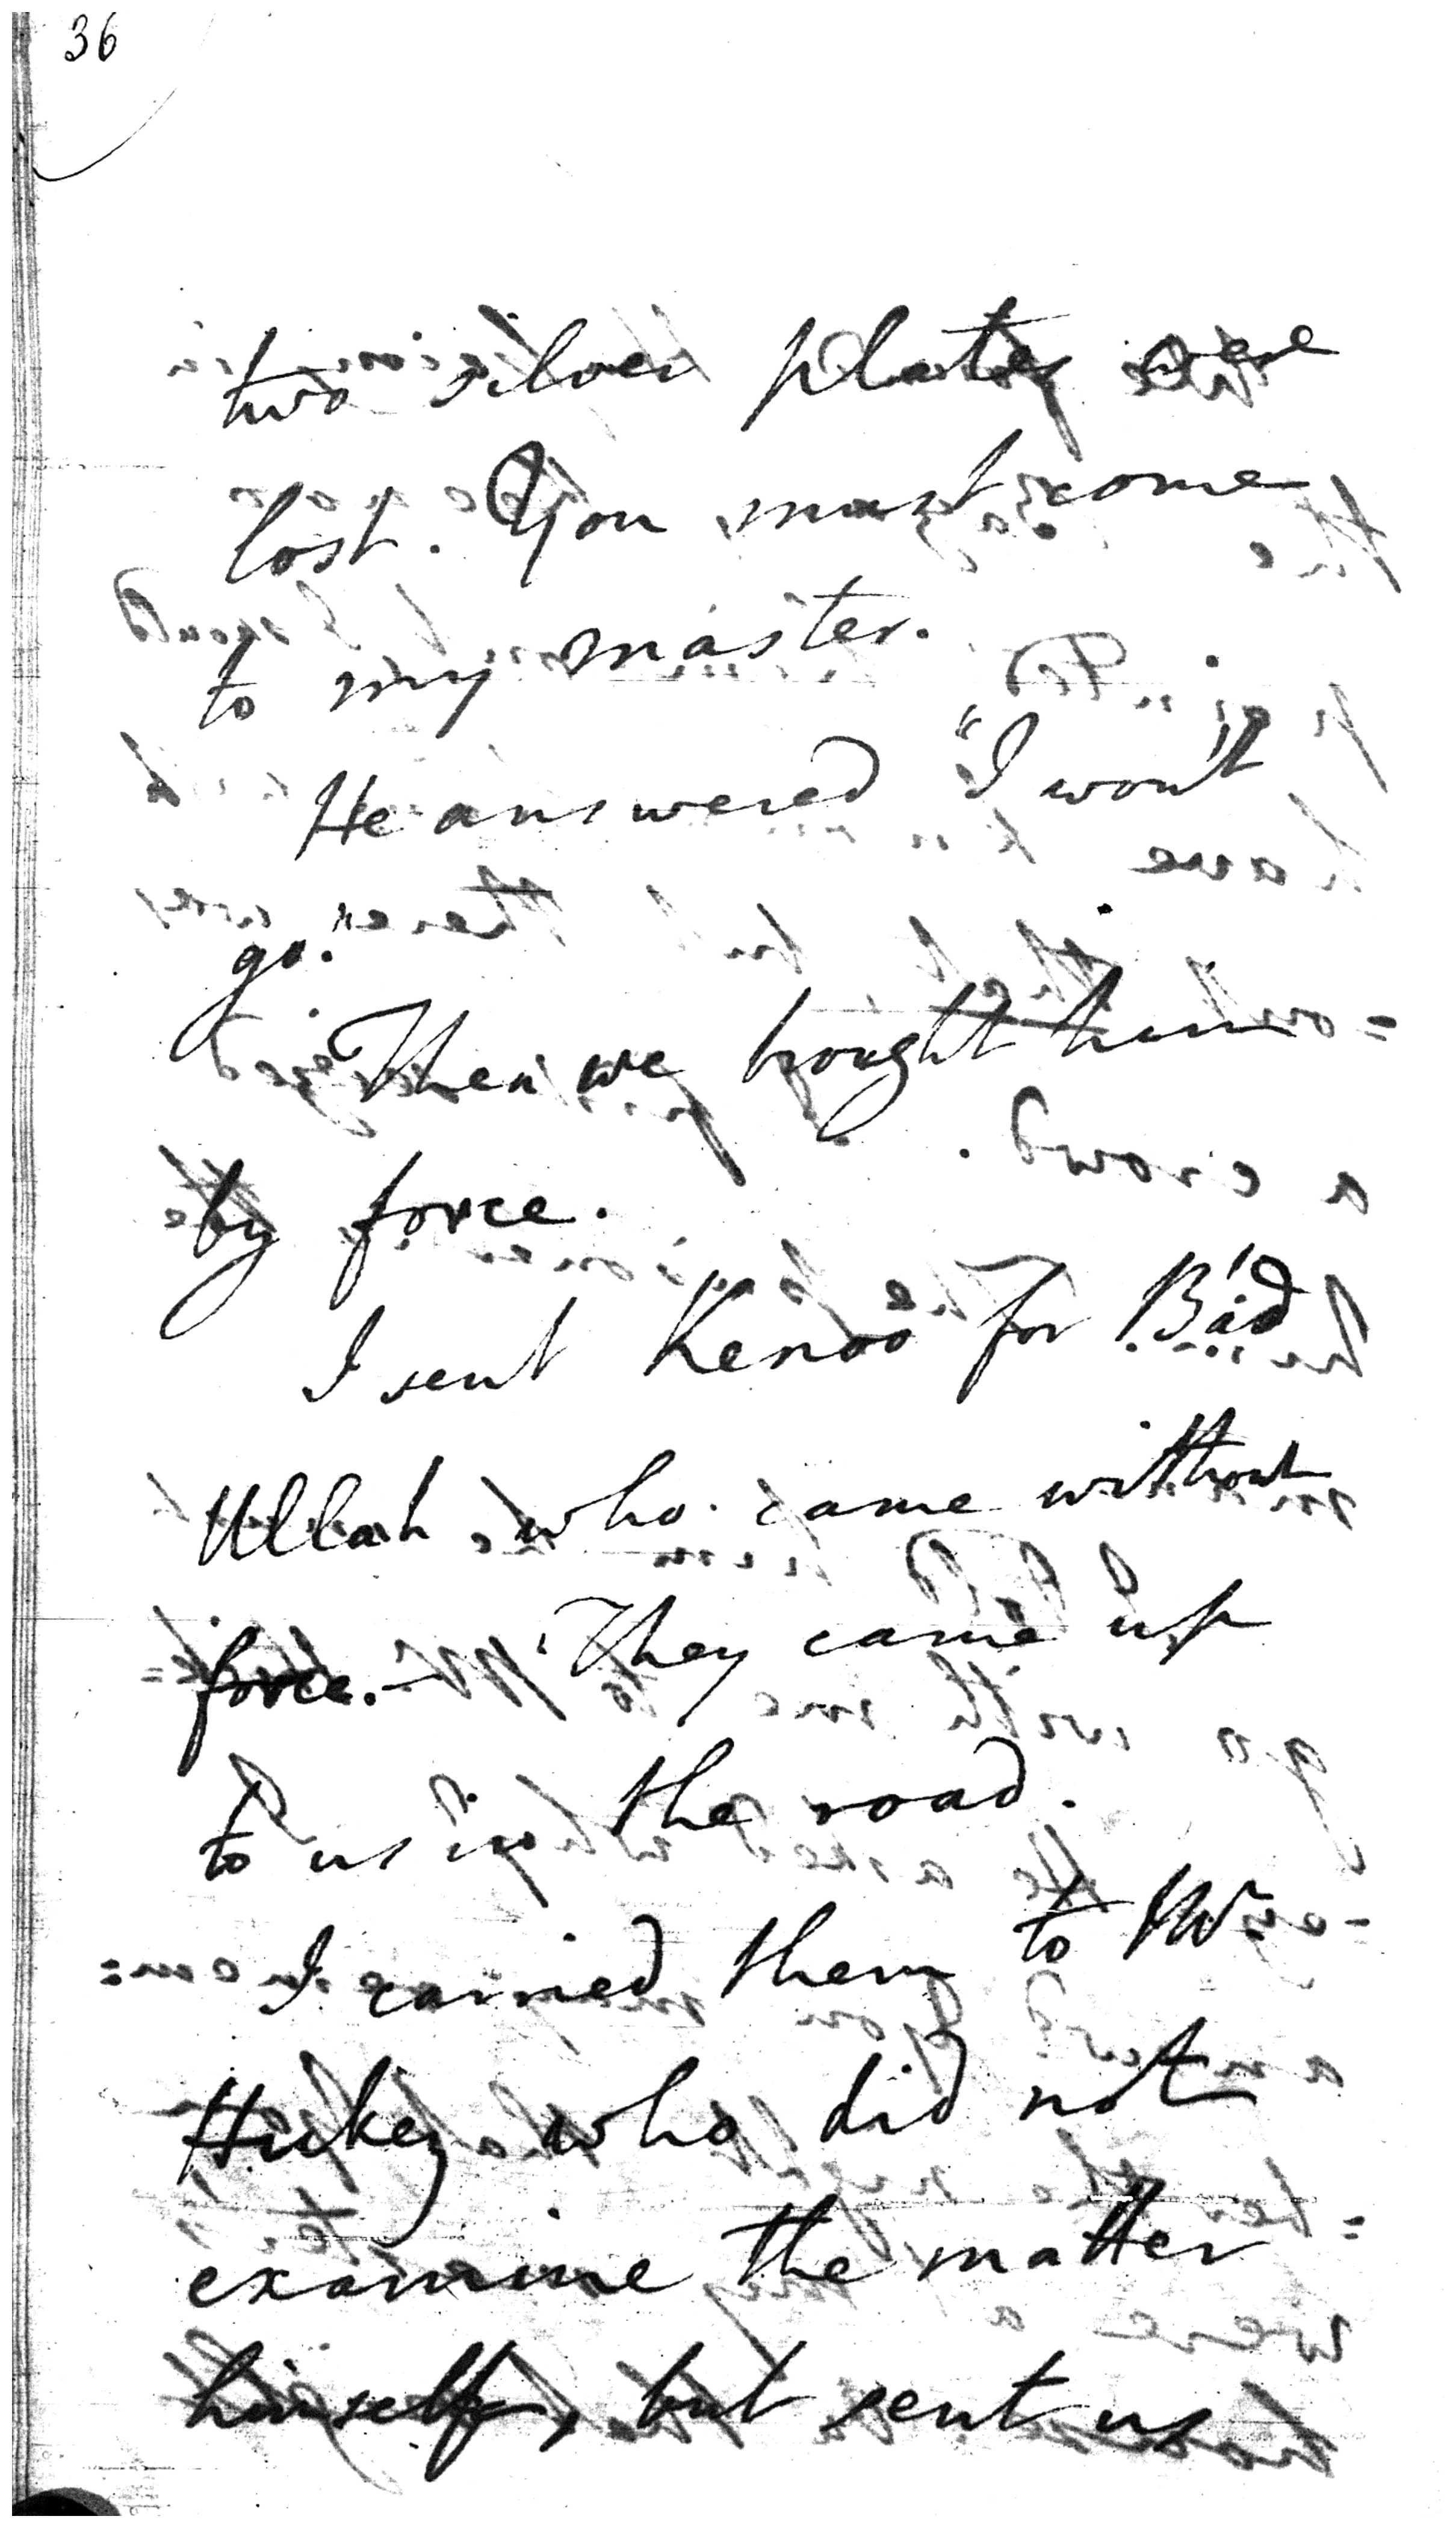 36
two silver plates were
lost. You must come
to my master.
He answered "I won't
go."
Then we brought him
by force.
I sent Kenoo for B'ad
Ullah who came without
force. — They came up
to us in the road.
I carried them to Mr
Hickey who did not
examine the matter
himself, but sent us